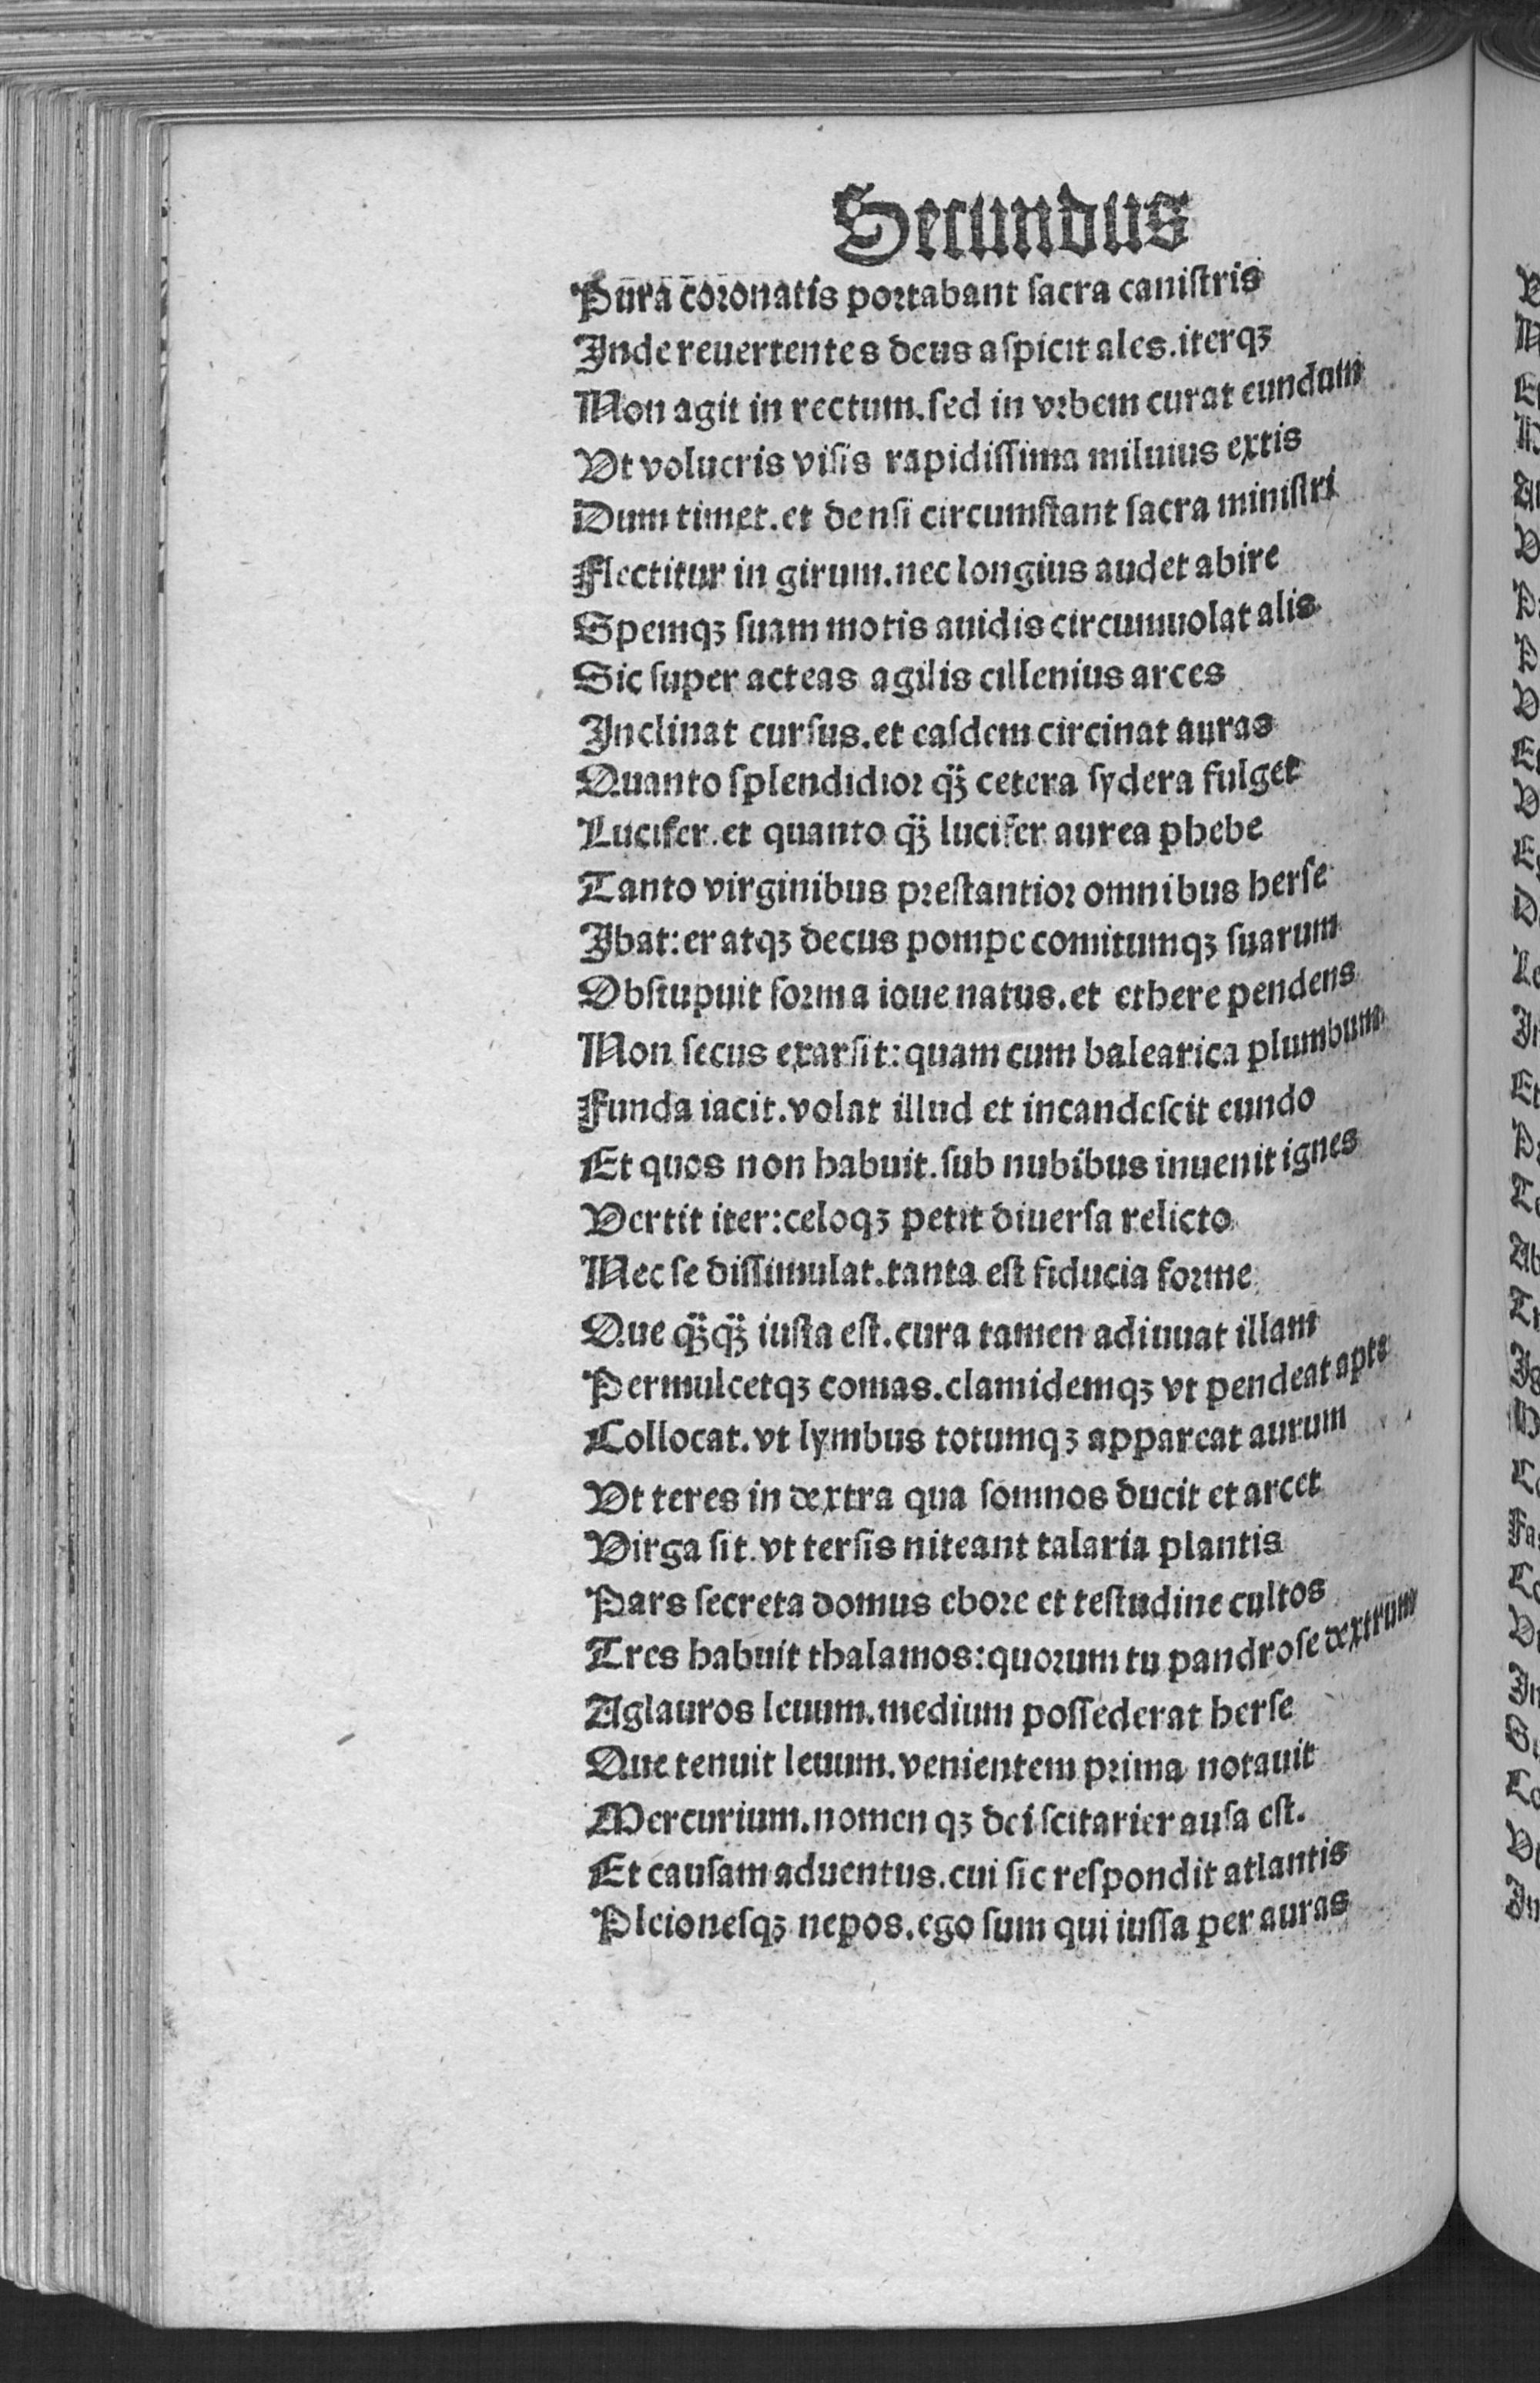 Secundus
Pura coronatis portabant ſacra caniſtris
Inde reuertentes deus aſpicit ales.iterqꝫ
Non agit in rectum.ſed in vrbem curat eundam
Vt volucris viſis rapidiſſima miluius extis
Dum timet.et denſi circumſtant ſacra miniſtri
Flectitur in girum.nec longius audet abire
Spemqꝫ ſuam motis auidis circumuolat alis
Sic ſuper acteas agilis cillenius arces
Inclinat curſus.et eaſdem circinat auras
Quanto ſplendidior qͣꝫ cetera ſydera fulget
Lucifer.et quanto qͣꝫ lucifer aurea phebe
Tanto virginibus preſtantior omnibus herſe
Ibat:eratqꝫ decus pompe comitumqꝫ ſuarum
Obſtupuit forma ioue natus.et ethere pendens
Non ſecus exarſit:quam cum balearica plumbum
Funda iacit.volat illud et incandeſcit eundo
Et quos non habuit.ſub nubibus inuenit ignes
Vertit iter:celoqꝫ petit diuerſa relicto
Nec ſe diſſimulat.tanta eſt fiducia forme
Que qͣꝫqͣꝫ iuſta eſt.cura tamen adiuuat illam
Permulcetqꝫ comas.clamidemqꝫ vt pendeat apte
Collocat.vt lymbus totumqꝫ appareat aurum
Vt teres in dextra qua ſomnos ducit et arcet
Virga ſit.vt terſis niteant talaria plantis
Pars ſecreta domus ebore et teſtudine cultos
Tres habuit thalamos:quorum tu pandroſe dextrum
Aglauros leuum.medium poſſederat herſe
Que tenuit leuum.venientem prima notauit
Mercurium.nomen qꝫ dei ſcitarier auſa eſt.
Et cauſam aduentus.cui ſic reſpondit atlantis
Pleioneſqꝫ nepos.ego ſum qui iuſſa per auras